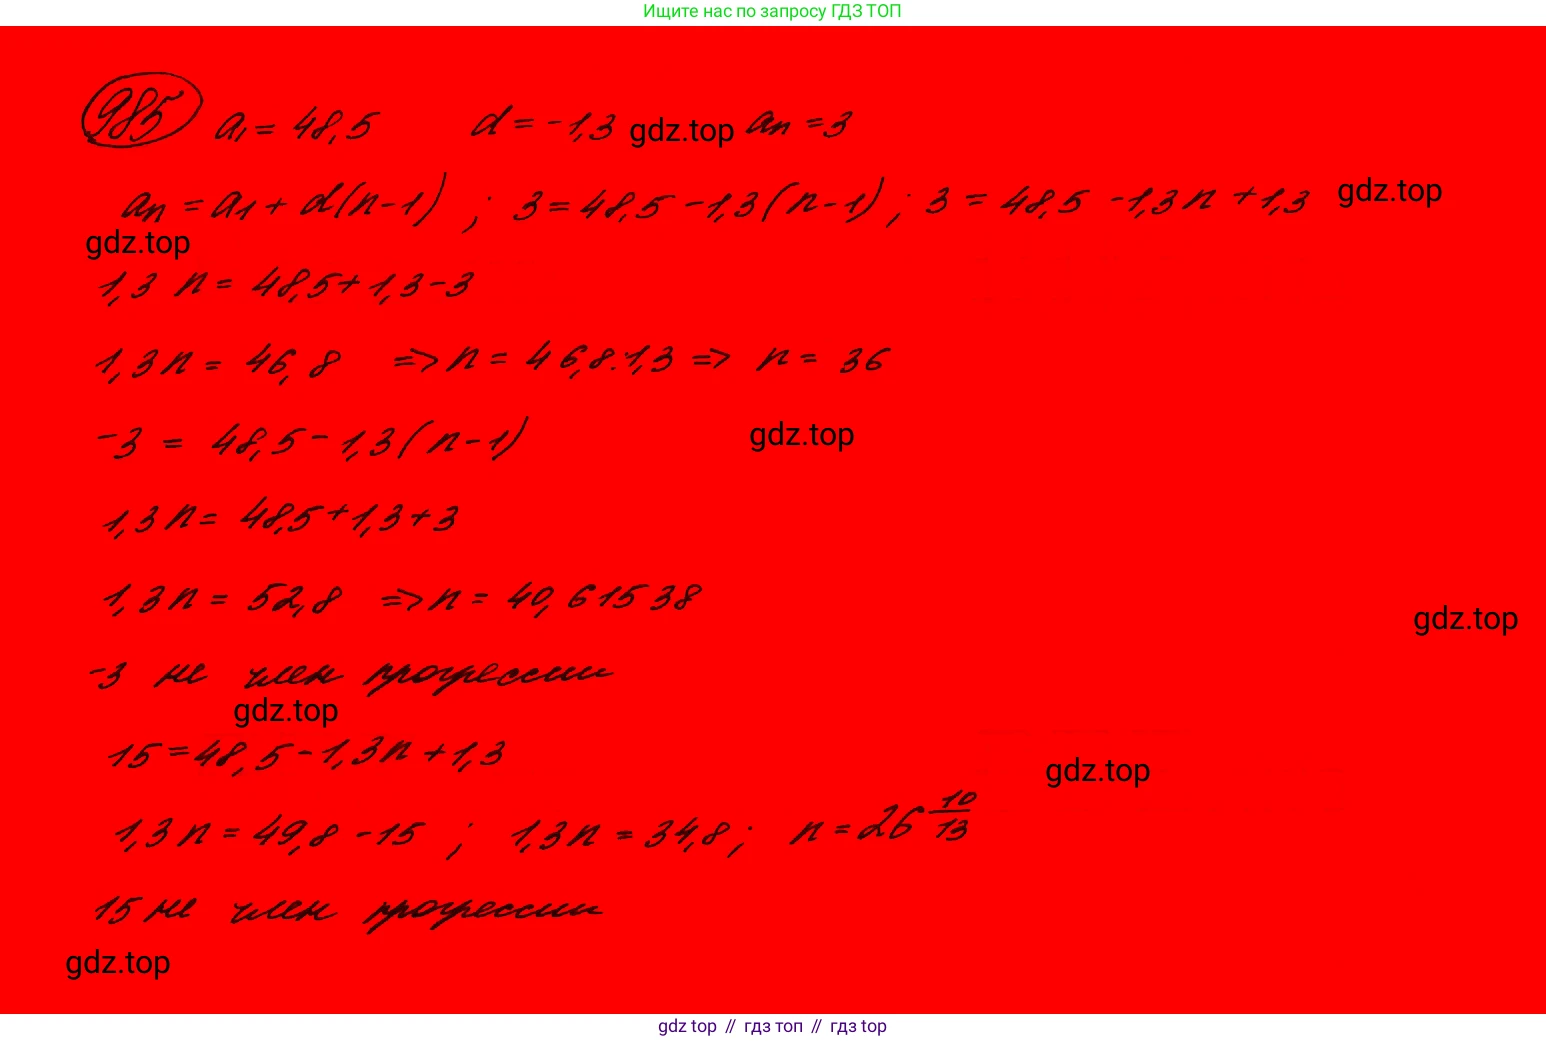 Ищите нас по запросу ГДЗ ТОП
985 a₁ = 48,5 d = -1,3 gdz.top aₙ = 3
aₙ = a₁ + d(n-1) ; 3 = 48,5 - 1,3(n-1) ; 3 = 48,5 - 1,3n + 1,3 gdz.top
gdz.top
1,3 n = 48,5 + 1,3 - 3
1,3n = 46,8 => n = 46,8:1,3 => n = 36
-3 = 48,5 - 1,3(n-1) gdz.top
1,3n = 48,5 + 1,3 + 3
1,3n = 52,8 => n = 40,61538
gdz.top
-3 не член прогрессии
gdz.top
15 = 48,5 - 1,3n + 1,3
gdz.top
1,3n = 49,8 - 15 ; 1,3n = 34,8; n = 26 10/13
15 не член прогрессии
gdz.top
gdz top // гдз топ // гдз top